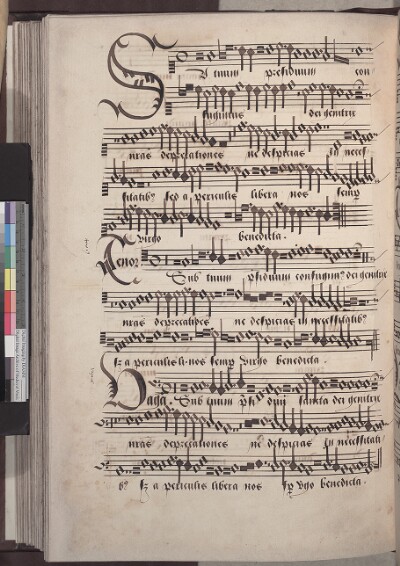 Sub tuum presidium con
fugimus dei genitrix
nras deprecationes ne despicias in necess
sitatibꝰ sed a periculis libera nos semp
Virgo benedicta.
Tenor
Sub tuum psidium confugimꝰ dei genitrix
nras deprecationes ne despicias in necessitatibꝰ
sz a periculis li-nos semp Virgo benedicta.
Bassa. Sub tuum psidium sancta dei genitrix
nras deprecationes ne despicias in necessitati
bꝰ sz a periculis libera nos sp Vgo benedicta.